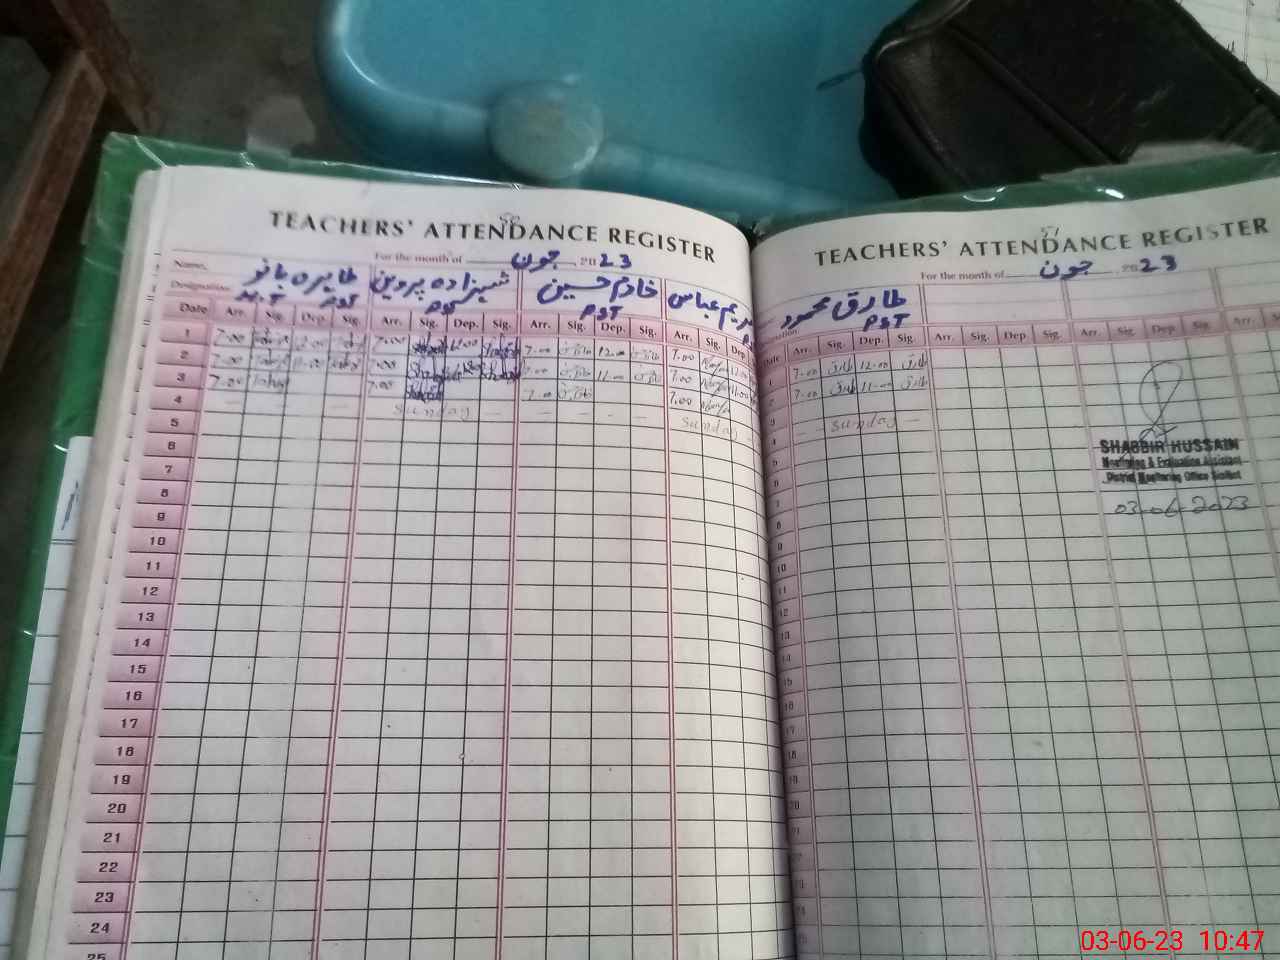 50
TEACHERS' ATTENDANCE REGISTER
For the month of جون 2023
Name,
طاہرہ بانو شہزادہ پروین خادم حسین مریم عباس
Designation
PST PST PST
Date Arr. Sig. Dep. Sig. Arr. Sig. Dep. Sig. Arr. Sig. Dep. Sig. Arr. Sig. Dep.
1 7-00 12-00 7-00 12-00 7-00 12-00 7-00
2 7-00 7-00 7-00 11-00 7-00 11-00
3 7-00 7-00 7-00 7-00
4 Sunday Sunday
5
6
7
8
9
10
11
12
13
14
15
16
17
18
19
20
21
22
23
24
25
51
TEACHERS' ATTENDANCE REGISTER
For the month of جون 2023
طارق محمود
PST
Date Arr. Sig. Dep. Sig. Arr. Sig. Dep. Sig. Arr. Sig. Dep. Sig. Arr. Sig.
1 7-00 طارق 12-00 طارق
2 7-00 طارق 11-00 طارق
3 Sunday
4
5
6
7
8
9
10
11
12
13
14
15
16
17
18
19
20
21
22
23
24
SHABBIR HUSSAIN
Monitoring & Evaluation Assistant
District Monitoring Office
03-06-2023
03-06-23 10:47